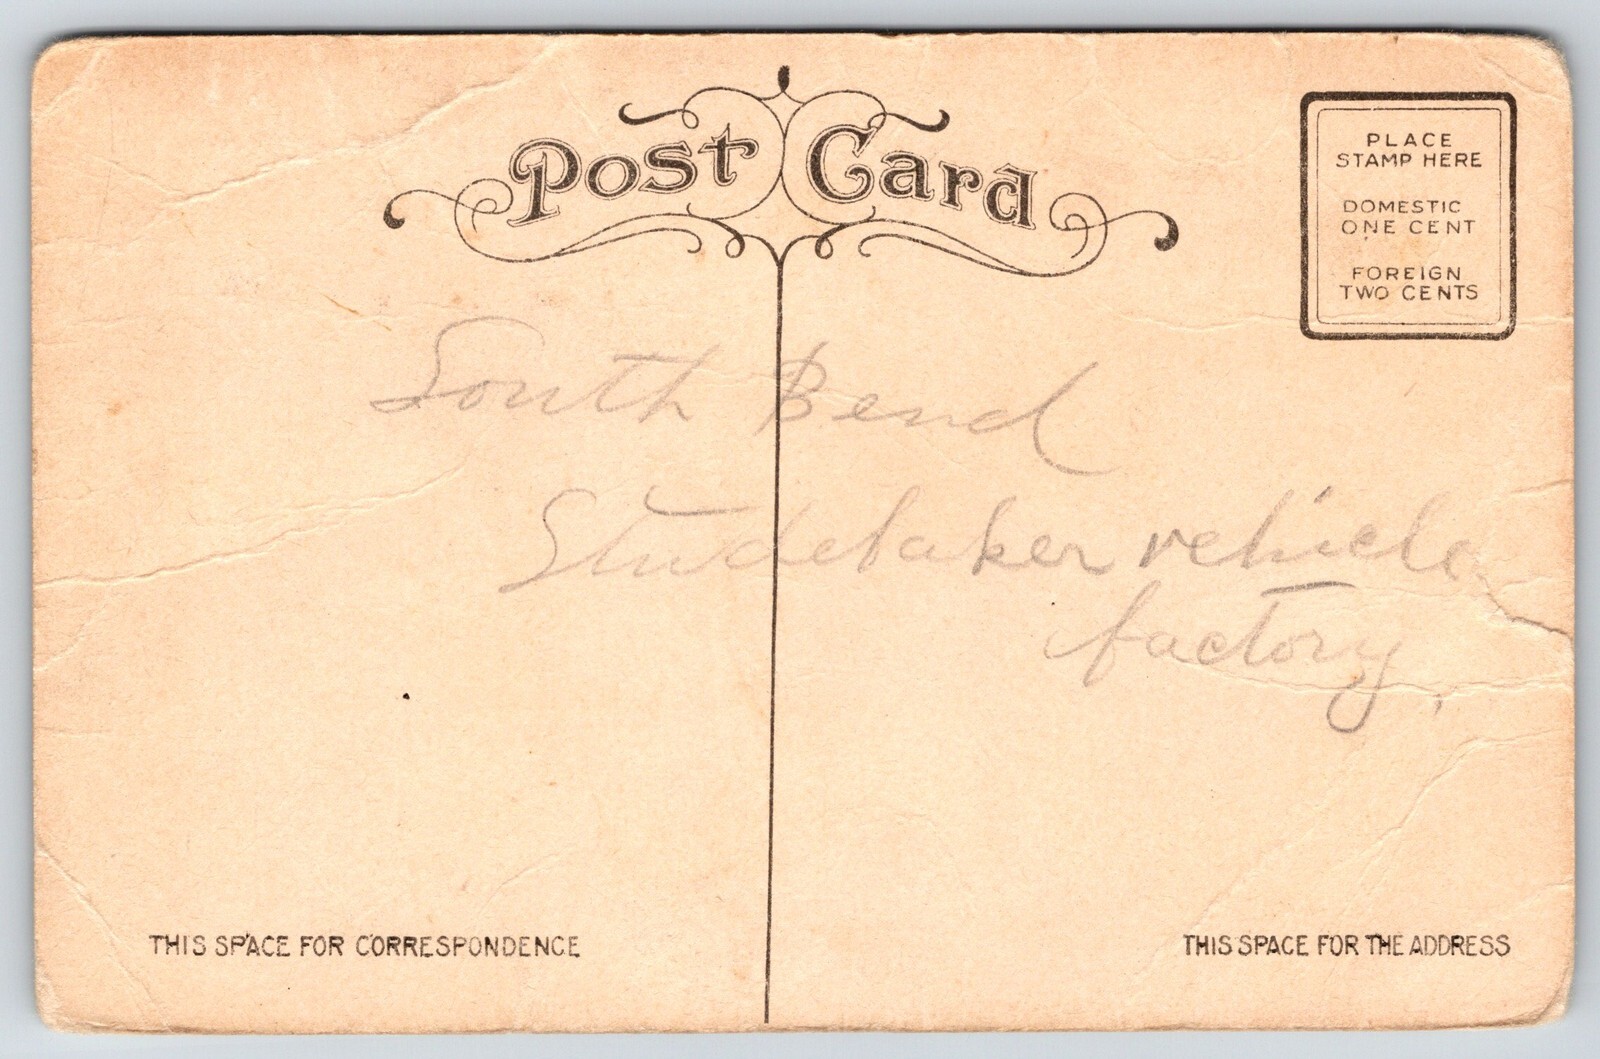 Post Card
PLACE
STAMP HERE
DOMESTIC
ONE CENT
FOREIGN
TWO CENTS
South Bend
Studebaker vehicle
factory.
THIS SPACE FOR CORRESPONDENCE
THIS SPACE FOR THE ADDRESS